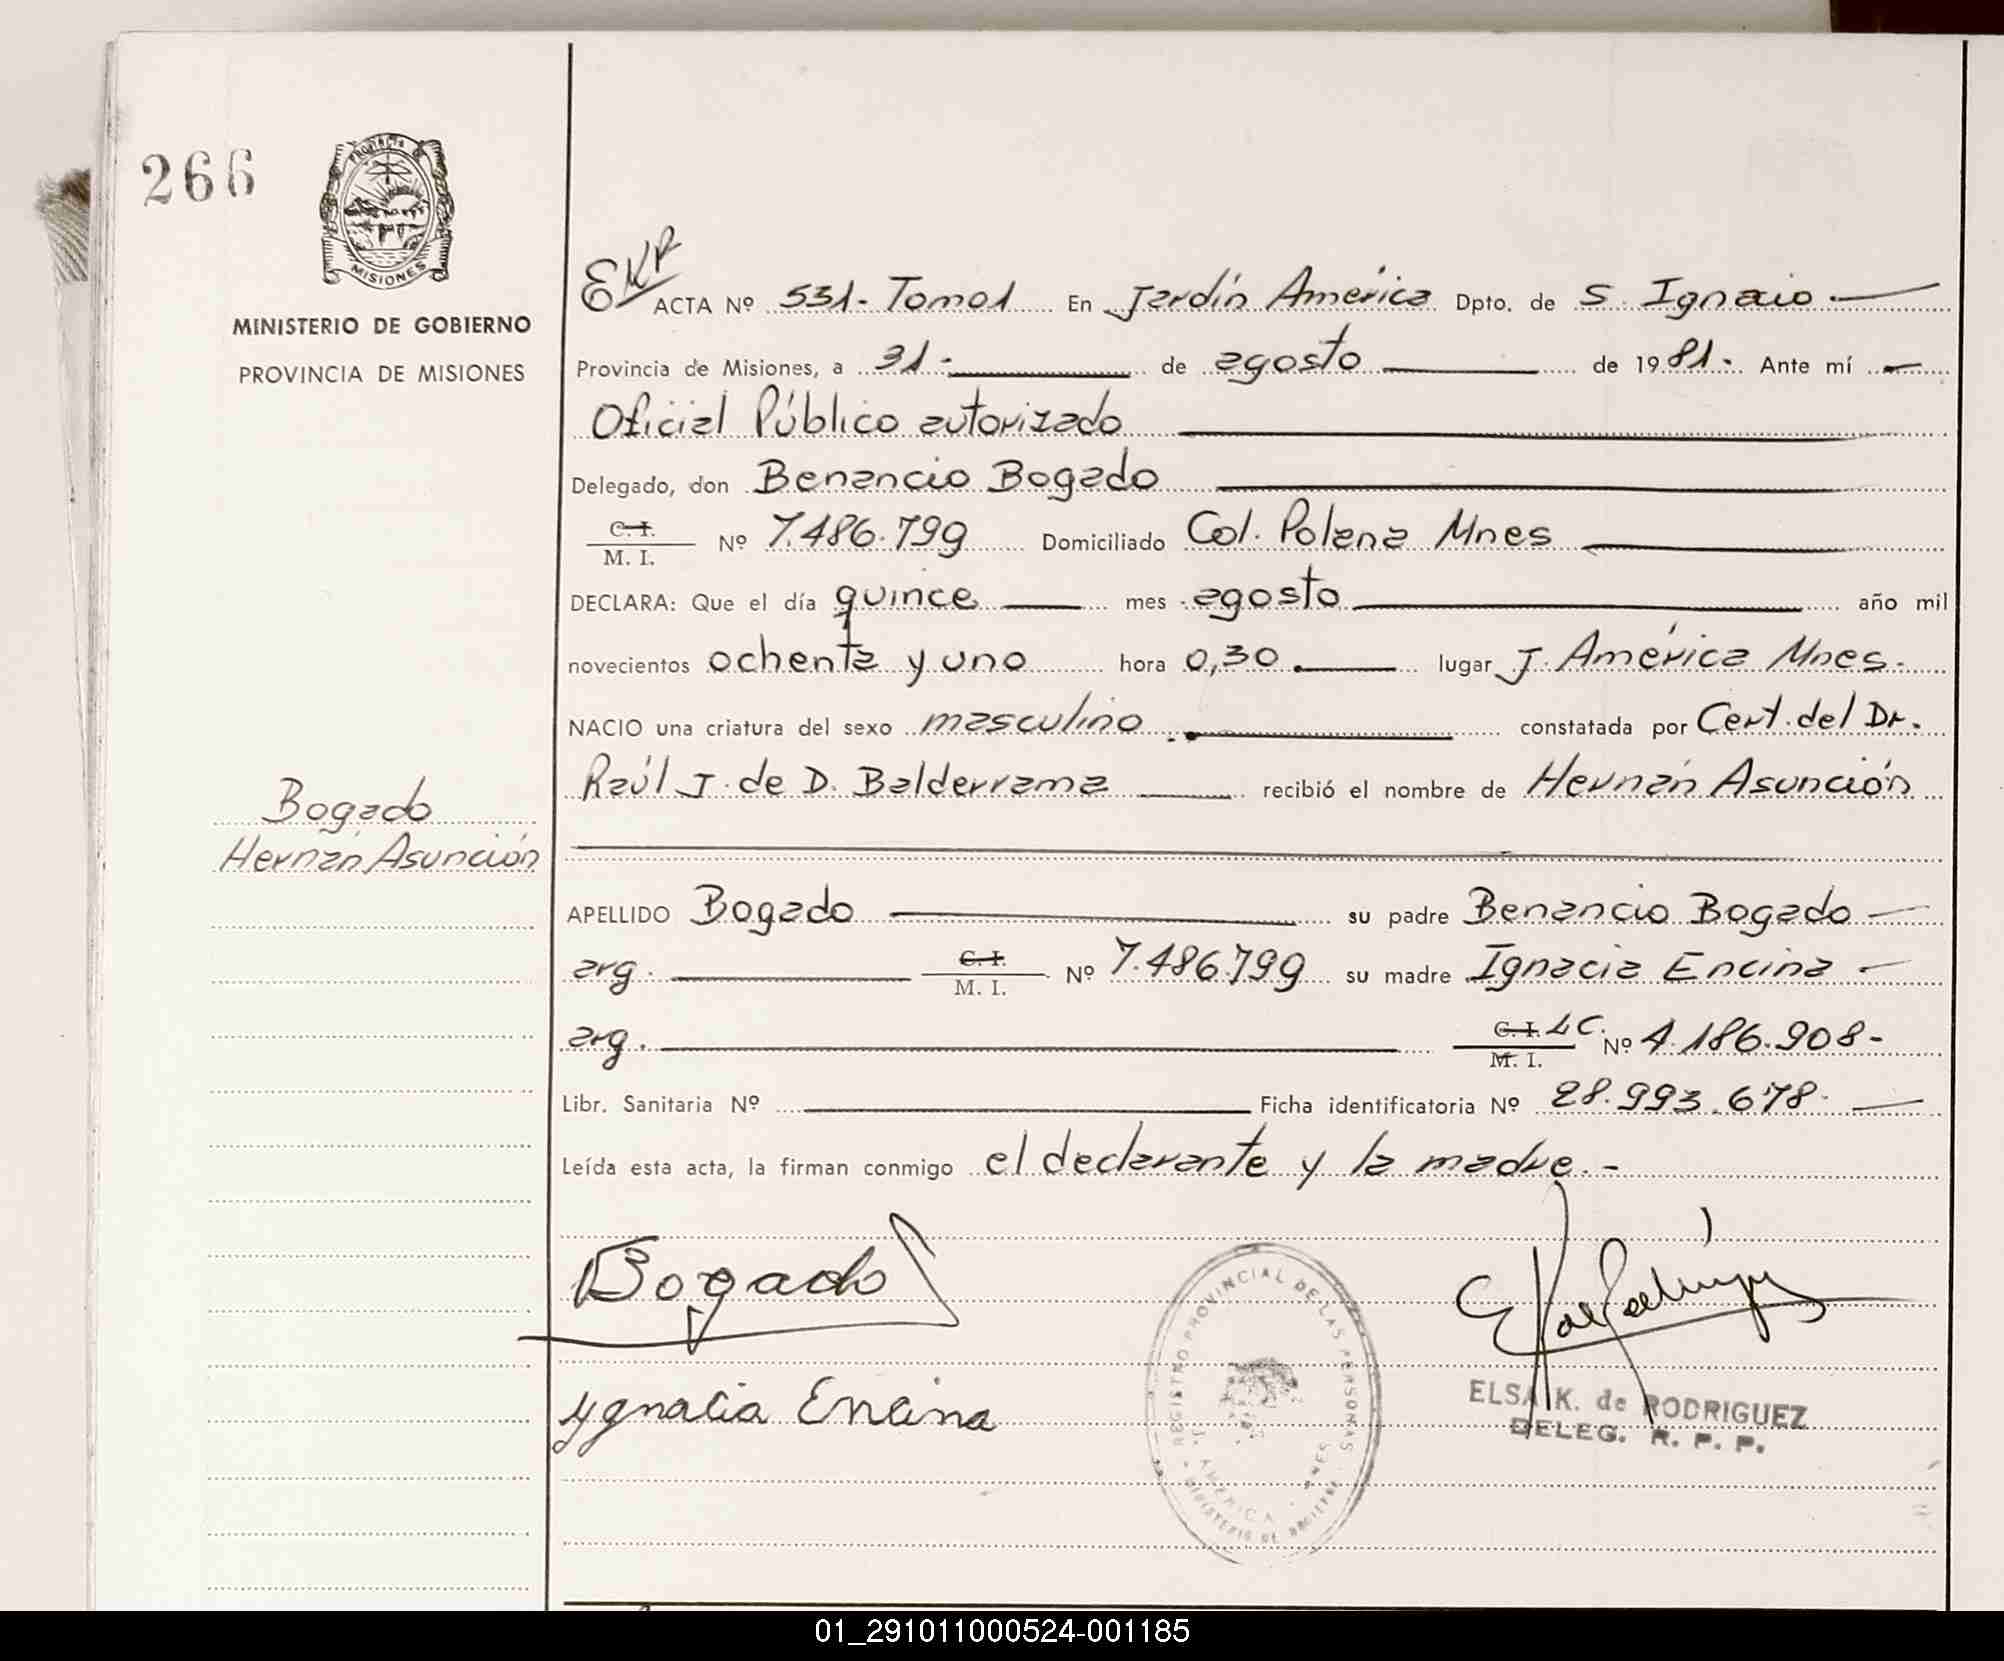 266
PROVINCIA
MISIONES
MINISTERIO DE GOBIERNO
PROVINCIA DE MISIONES
EKR
ACTA Nº 531-Tomo1 En Jardín América Dpto. de S. Ignacio
Provincia de Misiones, a 31- de agosto de 1981- Ante mí
Oficial Público autorizado
Delegado, don Benancio Bogado
C. I.
M. I. Nº 7.486.799 Domiciliado Col. Polana Mnes
DECLARA: Que el día quince mes agosto año mil
novecientos ochenta y uno hora 0,30 lugar J. América Mnes.
NACIO una criatura del sexo masculino constatada por Cert. del Dr.
Raúl J. de D. Balderrama recibió el nombre de Hernán Asunción
Bogado
Hernán Asunción
APELLIDO Bogado su padre Benancio Bogado
arg. C. I. M. I. Nº 7.486.799 su madre Ignacia Encina
arg. C. I. LC. M. I. Nº 4.186.908-
Libr. Sanitaria Nº Ficha identificatoria Nº 28.993.678-
Leída esta acta, la firman conmigo el declarante y la madre.-
Bogado
Ygnacia Encina
REGISTRO PROVINCIAL DE LAS PERSONAS
J. AMERICA - MNES
MINISTERIO DE GOBIERNO
EK de Rodríguez
ELSA K. de RODRIGUEZ
DELEG. R. P. P.
01_291011000524-001185